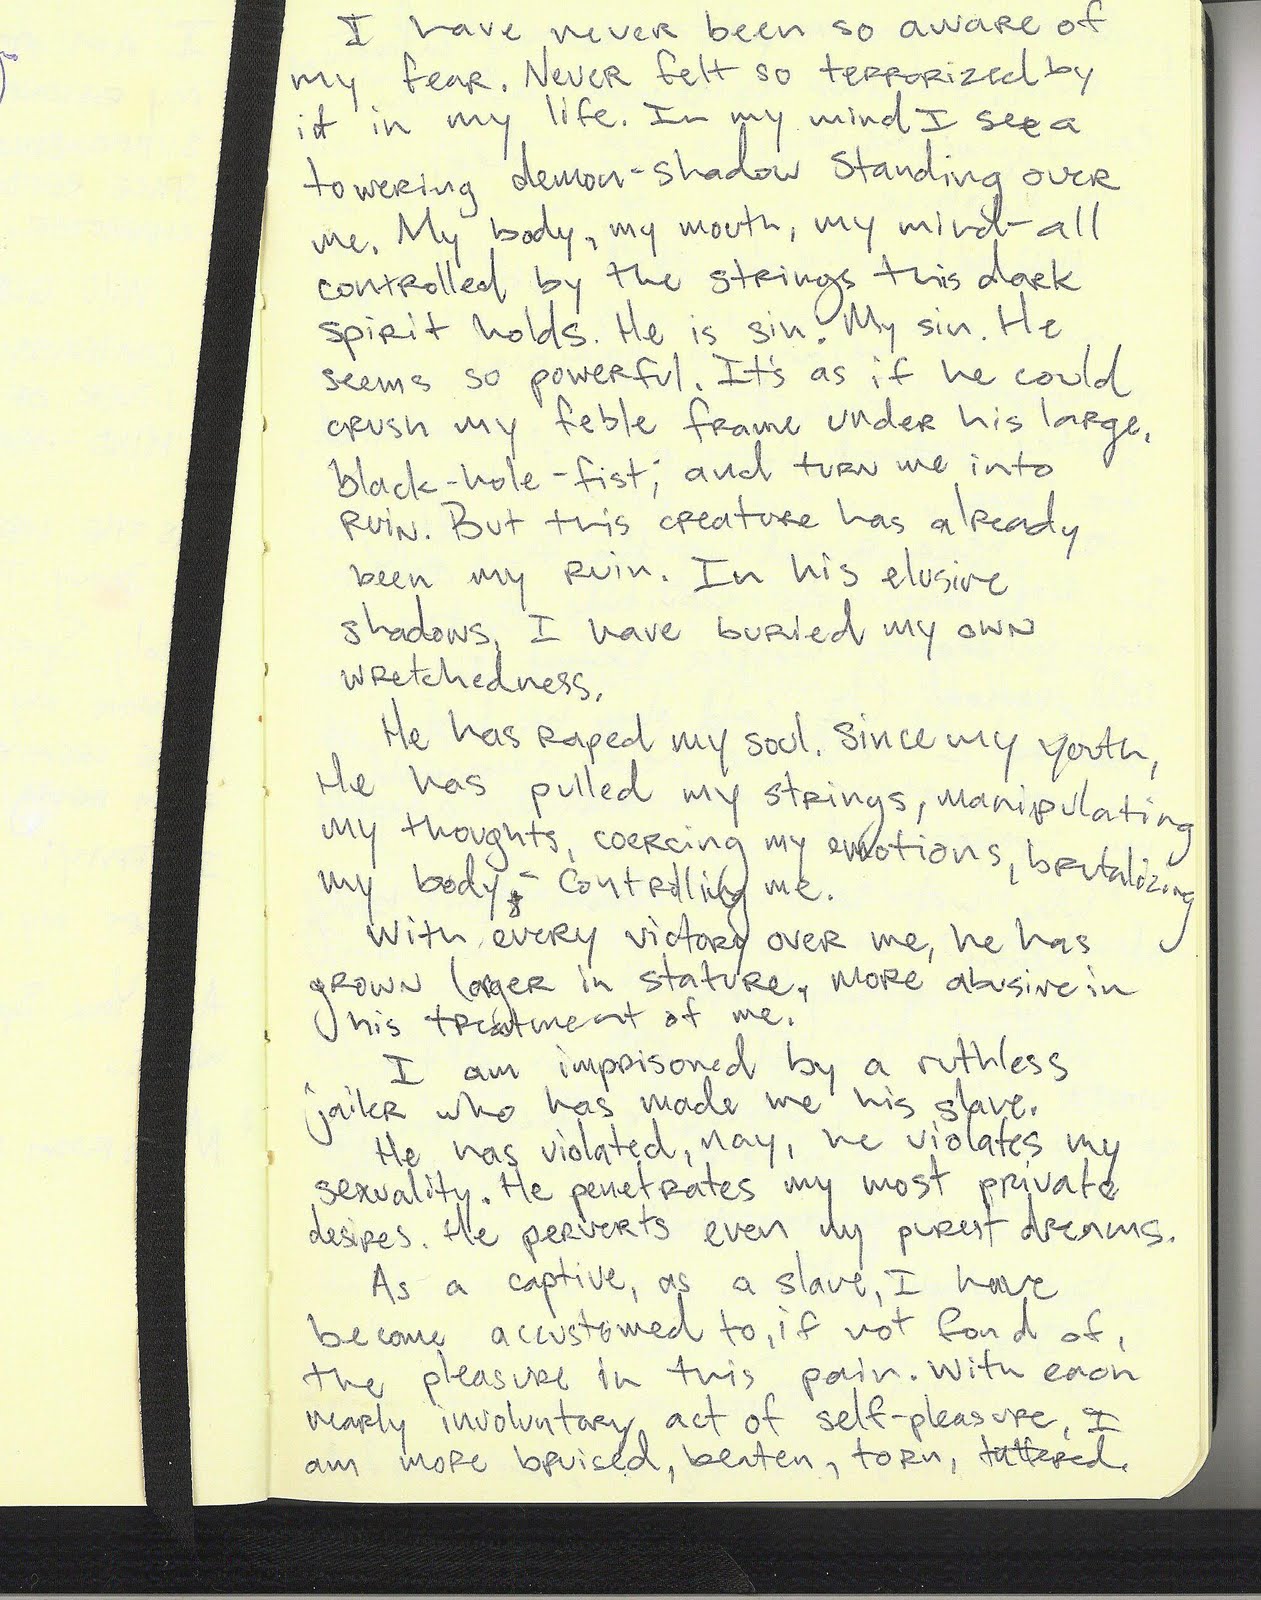 I have never been so aware of
my fear. Never felt so terrorized by
it in my life. In my mind I see a
towering demon-shadow standing over
me. My body, my mouth, my mind-all
controlled by the strings this dark
spirit holds. He is sin. My sin. He
seems so powerful. It's as if he could
crush my feble frame under his large,
black-hole-fist; and turn me into
ruin. But this creature has already
been my ruin. In his elusive
shadows, I have buried my own
wretchedness.
He has raped my soul. Since my youth,
He has pulled my strings, manipulating
my thoughts, coercing my emotions, brutalizing
my body,- controlling me.
With every victory over me, he has
grown larger in stature, more abusive in
his treatment of me.
I am imprisoned by a ruthless
jailer who has made me his slave.
He has violated, nay, he violates my
sexuality. He penetrates my most private
desires. He perverts even my purest dreams.
As a captive, as a slave, I have
become accustomed to, if not fond of,
the pleasure in this pain. With each
nearly involuntary act of self-pleasure, I
am more bruised, beaten, torn, tattered.